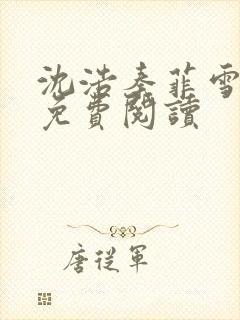 沈浩秦菲雪
免費閱讀
唐從軍